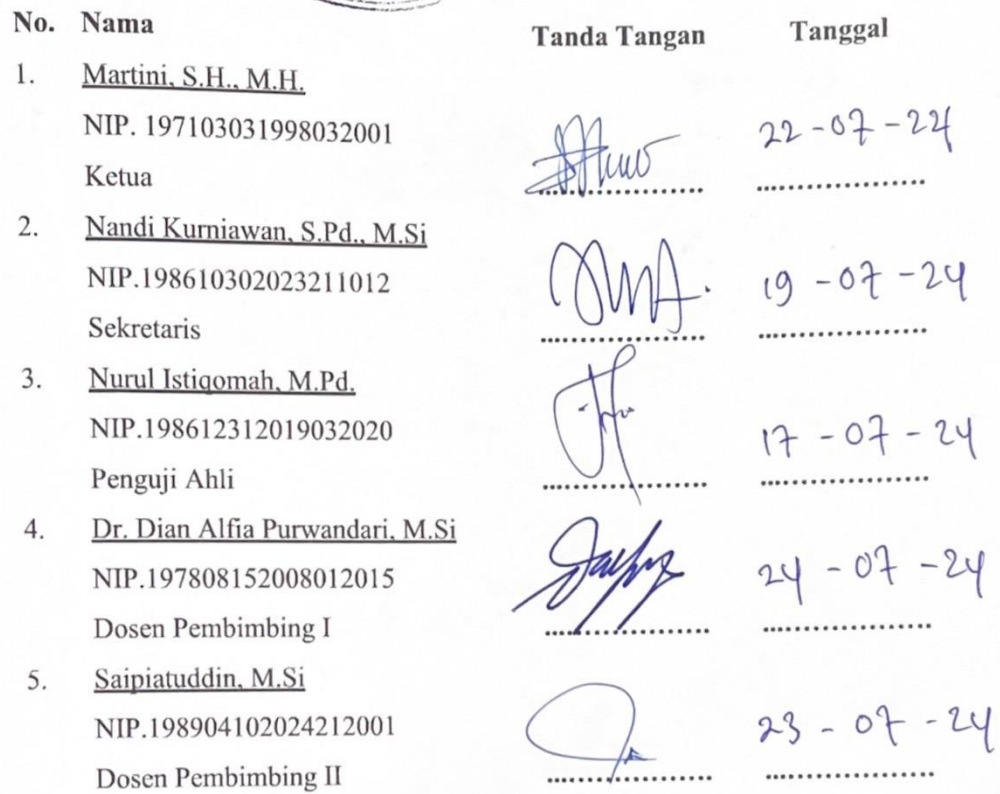 No. Nama Tanda Tangan Tanggal
1. Martini, S.H., M.H.
NIP. 197103031998032001 22-07-24
Ketua
2. Nandi Kurniawan, S.Pd., M.Si
NIP.198610302023211012 19-07-24
Sekretaris
3. Nurul Istiqomah, M.Pd.
NIP.198612312019032020 17-07-24
Penguji Ahli
4. Dr. Dian Alfia Purwandari, M.Si
NIP.197808152008012015 24-07-24
Dosen Pembimbing I
5. Saipiatuddin, M.Si
NIP.198904102024212001 23-07-24
Dosen Pembimbing II